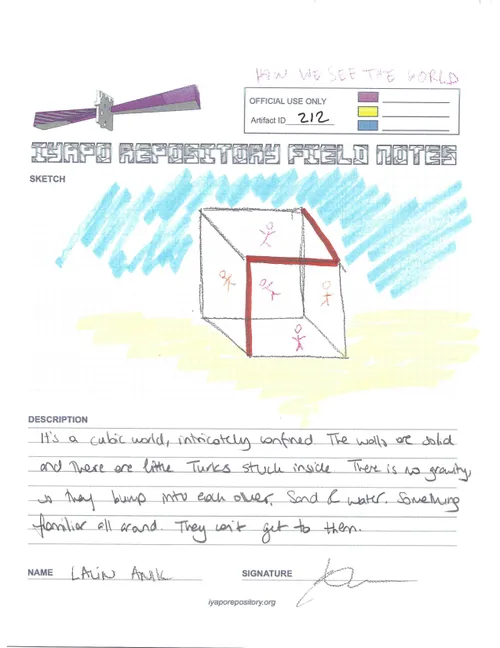 HOW WE SEE THE WORLD
OFFICIAL USE ONLY
Artifact ID 212
IYAPO REPOSITORY FIELD NOTES
SKETCH
DESCRIPTION
It's a cubic world, intricately confined. The walls are solid
and there are little Turks stuck inside. There is no gravity,
so they bump into each other, Sand & water. Something
familiar all around. They can't get to them.
NAME LALIN ANIK
SIGNATURE
iyaporepository.org